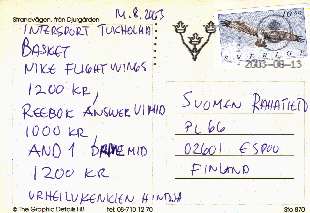 Strandvägen, från Djurgården
14.8.2003
INTERSPORT TUCHOLMA
BASKET
NIKE FLIGHT WINGS
1200 KR,
REEBOK ANSWER VI MID
1000 KR,
AND 1 MID
1200 KR
URHEILUKENKIEN HINTOJA
10.00
SVERIGE
2003-08-13
SUOMEN RAHATIETO
PL 66
02601 ESPOO
FINLAND
© The Graphic Details HB
tel: 08-710 12 70
Sto 870